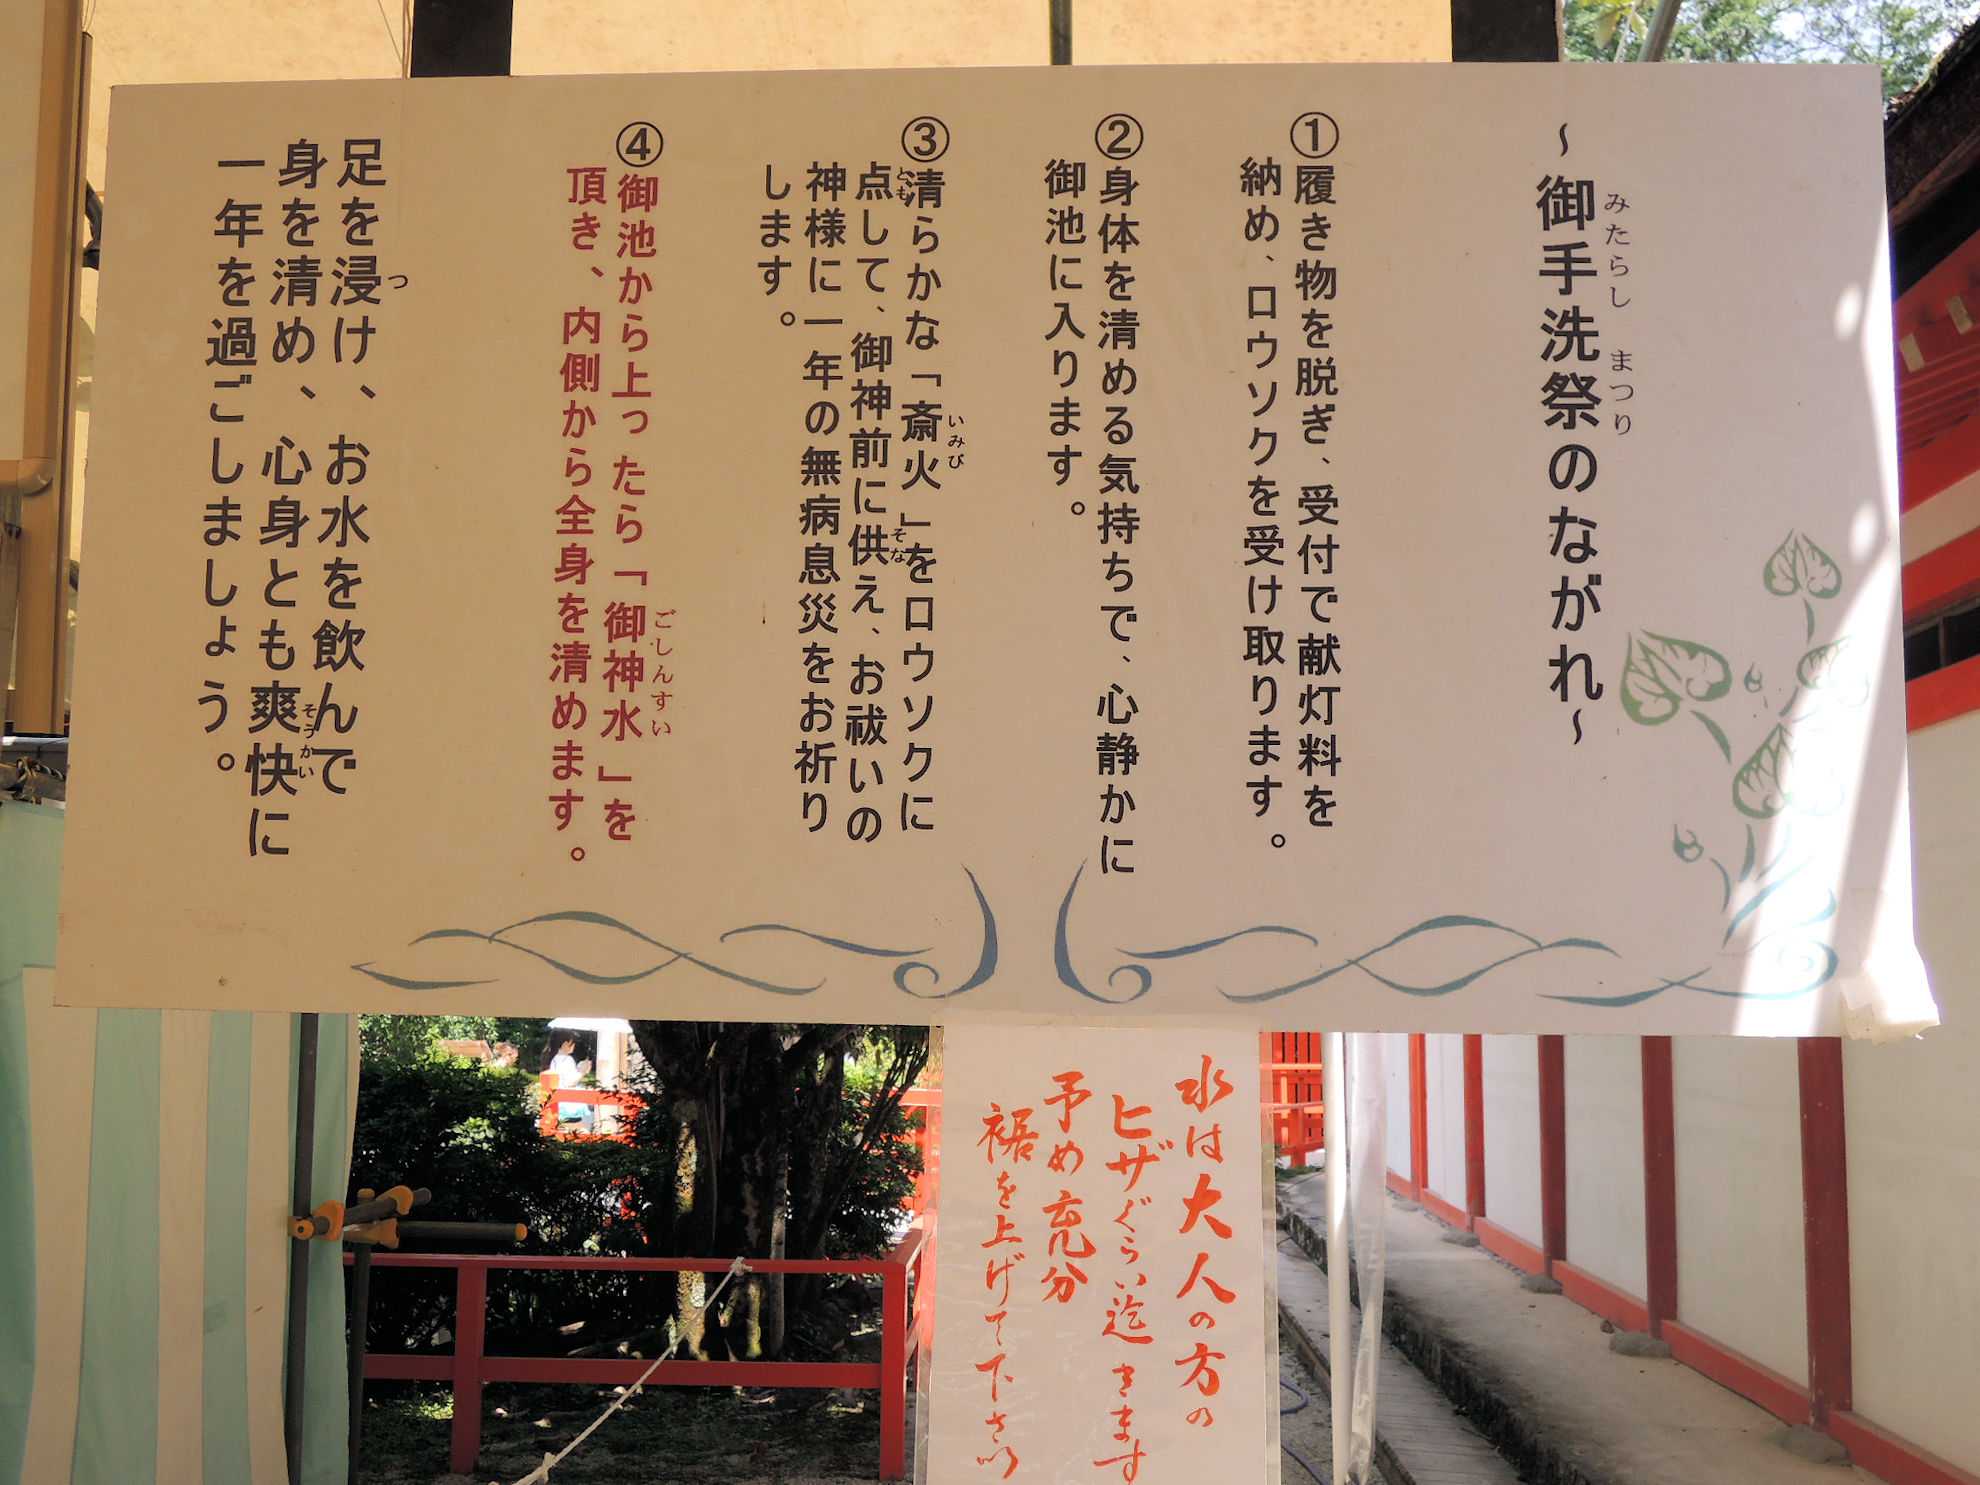 ～御手洗祭のながれ～
みたらし まつり
①履き物を脱ぎ、受付で献灯料を
納め、ロウソクを受け取ります。
②身体を清める気持ちで、心静かに
御池に入ります。
③清らかな「斎火」をロウソクに
いみび
点して、御神前に供え、お祓いの
とも そな
神様に一年の無病息災をお祈り
します。
④御池から上ったら「御神水」を
ごしんすい
頂き、内側から全身を清めます。
足を浸け、お水を飲んで
つ
身を清め、心身とも爽快に
そうかい
一年を過ごしましょう。
水は大人の方の
ヒザぐらい迄きます
予め充分
裾を上げて下さい